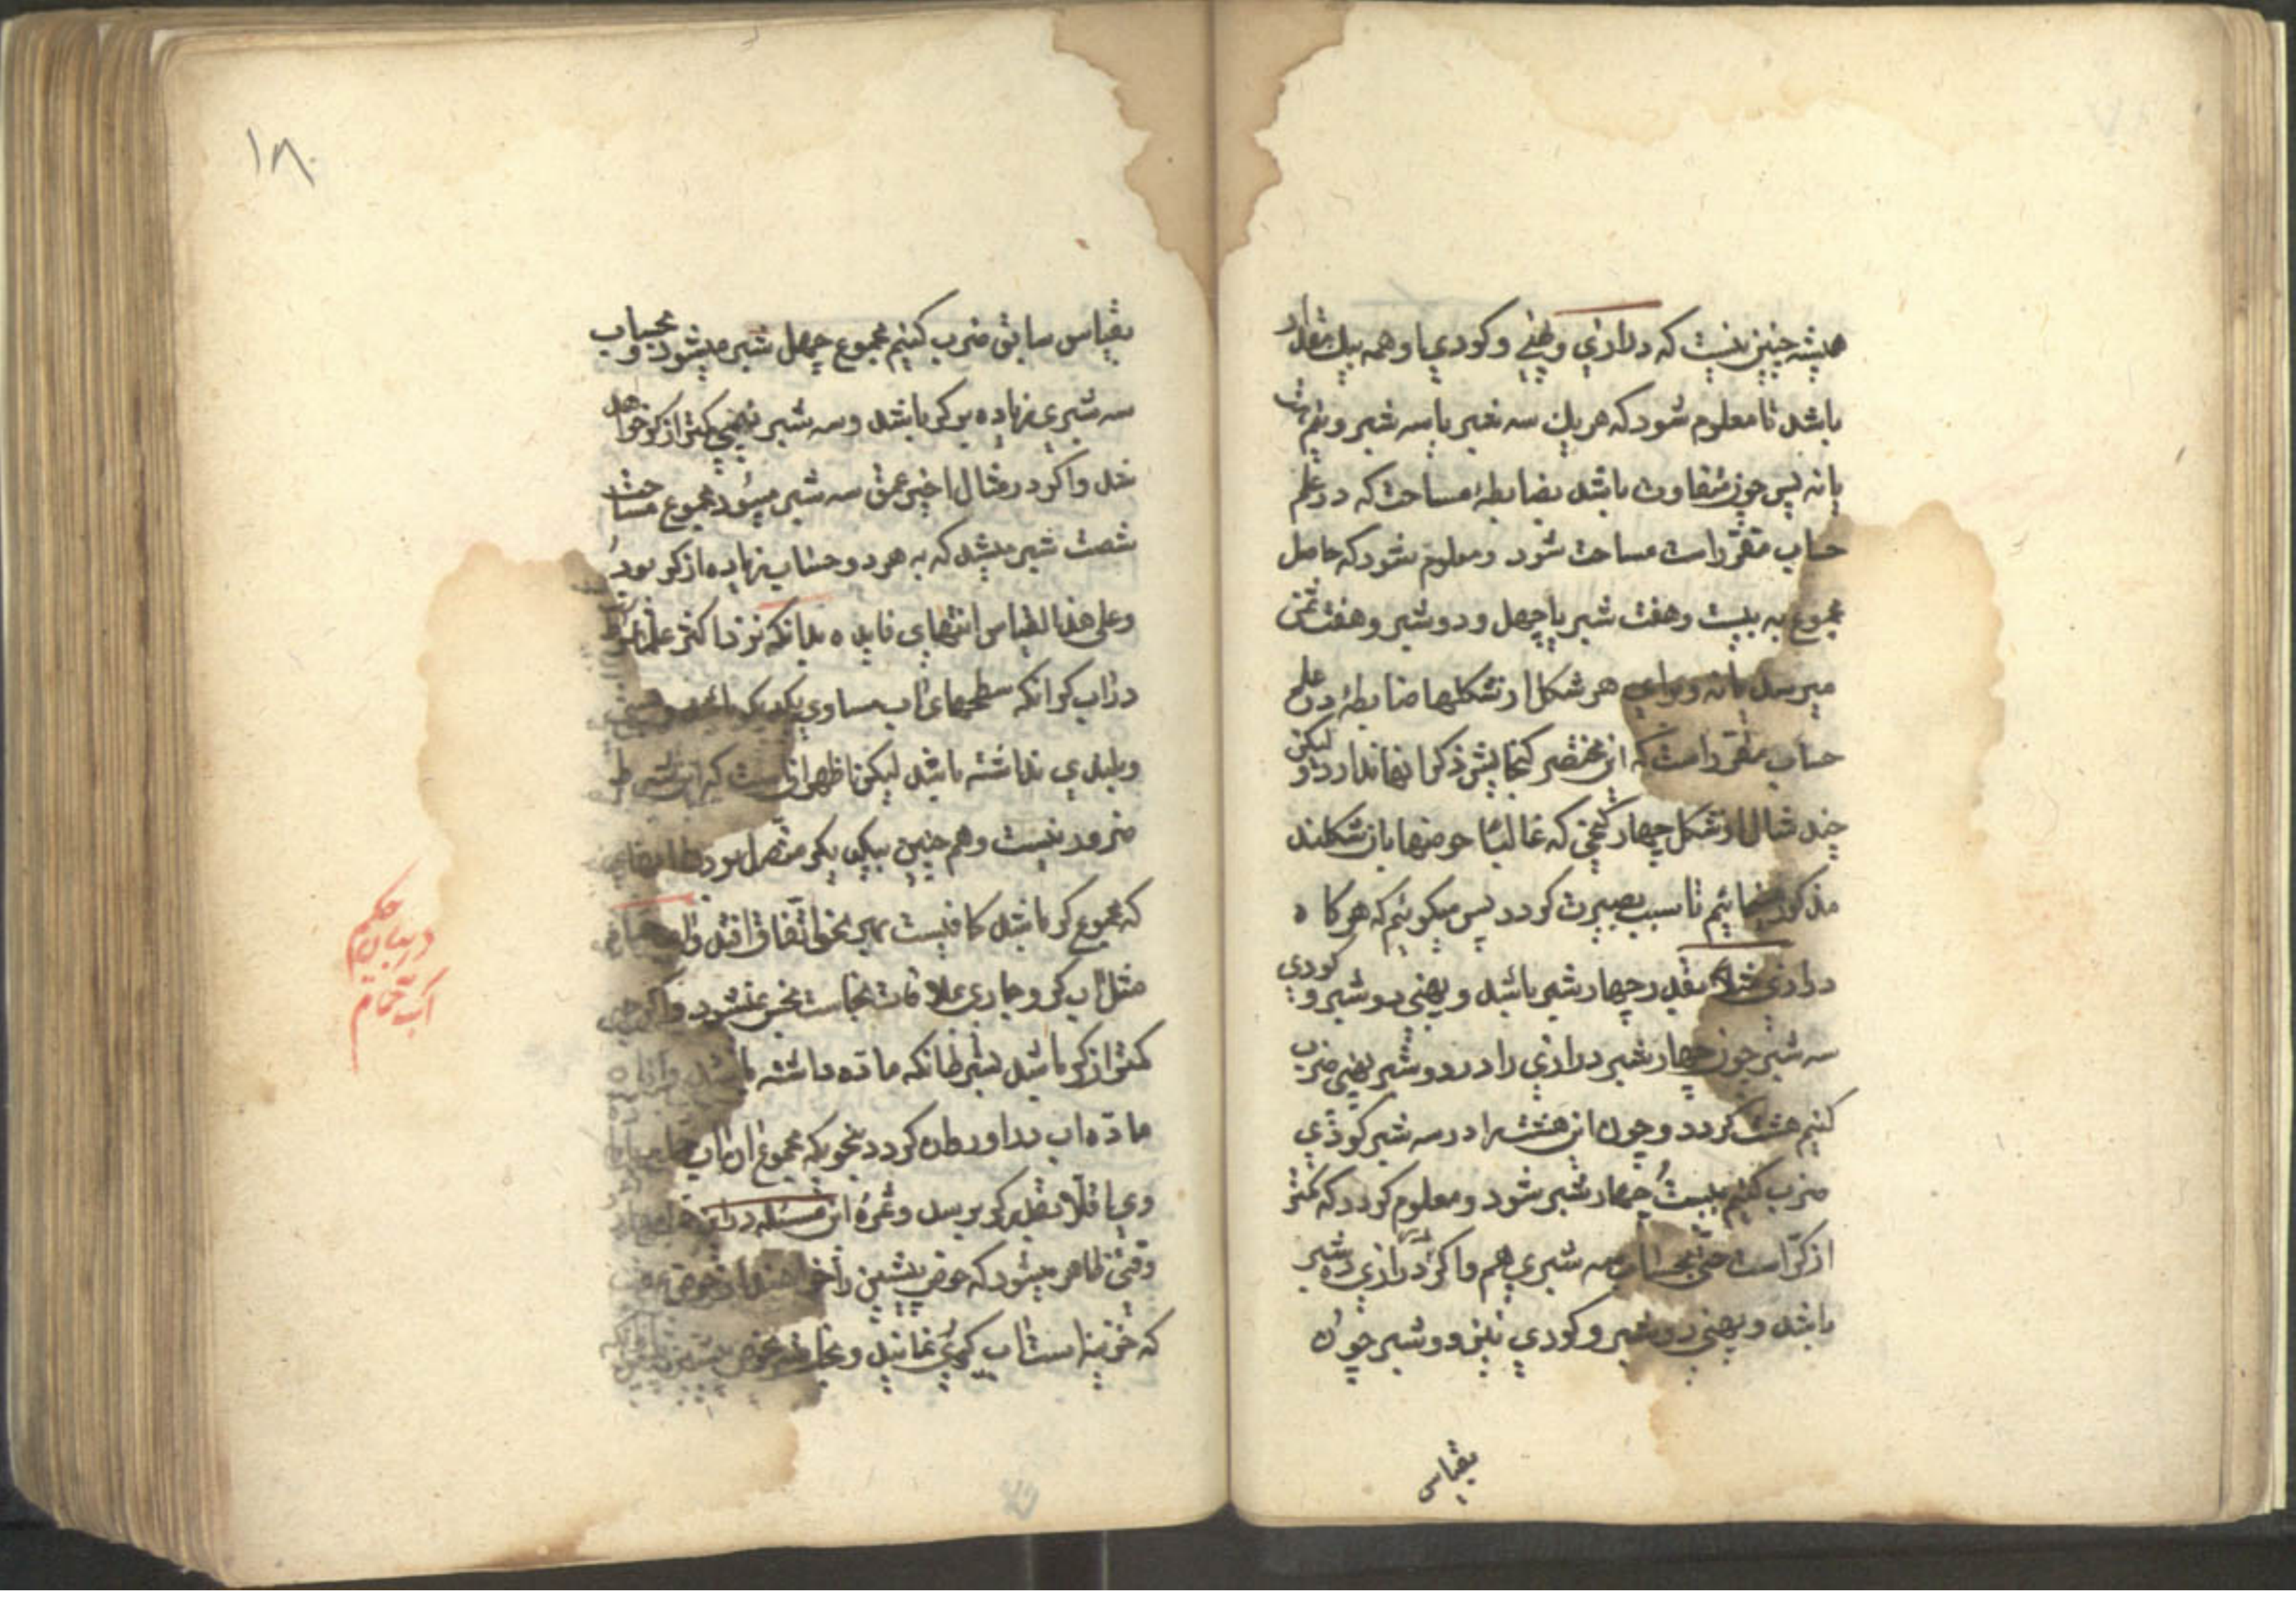 همیشه چنین نیست که درازی و پهنی و کودی او همه بیک مقدار
باشد تا معلوم شود که هر یک سه شبر یا سه شبر و نیم است
یا نه پس چون متفاوت باشد بضابطهٔ مساحت که در علم
حساب مقرّر است مساحت شود و معلوم شود که حاصل
مجموع به بیست و هفت شبر یا چهل و دو شبر و هفت ثمن
میرسد یا نه و برای هر شکل از شکلها ضابطهٔ در علم
حساب مقرّر است که این مختصر گنجایش ذکر انها ندارد و لیکن
چند مثال از شکل چهار کنجی که غالبًا حوضها بان شکلند
مذکور مینمائیم تا سبب بصیرت کردد پس میکوئیم که هرکاه
درازی مثلا بقدر چهار شبر باشد و پهنی دو شبر و کودی
سه شبر چون چهار شبر درازی را در دو شبر پهنی ضرب
کنیم هشت کردد و چون این هشت را در سه شبر کودی
ضرب کنیم بیست چهار شبر شود و معلوم کردد که کمتر
از کرّ است حتی بحساب سه شبری هم و اکر درازی ده شبر
باشد و پهنی دو شبر و کودی نیز دو شبر چون
بقیاس
۱۸۰
بقیاس سابق ضرب کنیم مجموع چهل شبر میشود و بحساب
سه شبری زیاده بر کر باشد و سه شبر نیمی کمتر از کر خواهد
شد و اکر در مثال اخیر عمق سه شبر میبود مجموع مساحت
شصت شبر میشد که به هر دو حساب زیاده از کر بود
و علی هذا القیاس انتهای فایده بدانکه نزد اکثر علما شرط
در اب کر انکه سطحهای اب مساوی یکدیکر باشد و پستی
و بلندی نداشته باشد لیکن اظهر انست که این شرط
ضرور نیست و هم چنین بیکدیکر متصل بود
که مجموع کر باشد کافیست بهر نحو اتّفاق افتد و اب حمام
مثل اب کر و جاری بملاقات نجاست نجس نمیشود و اکرچه
کمتر از کر باشد بشرط انکه مادّه داشته باشد و از ان
مادّه اب بدا و روان کردد بنحویکه مجموع ان اب
وی یا قلّا بقدر کر برسد و ثمرهٔ این مسئله در
وقتی ظاهر میشود که حوض پیشین را خواهند از حوض
که خزینه است اب کیری نمایند و
در بیان حکم
اب حمّام